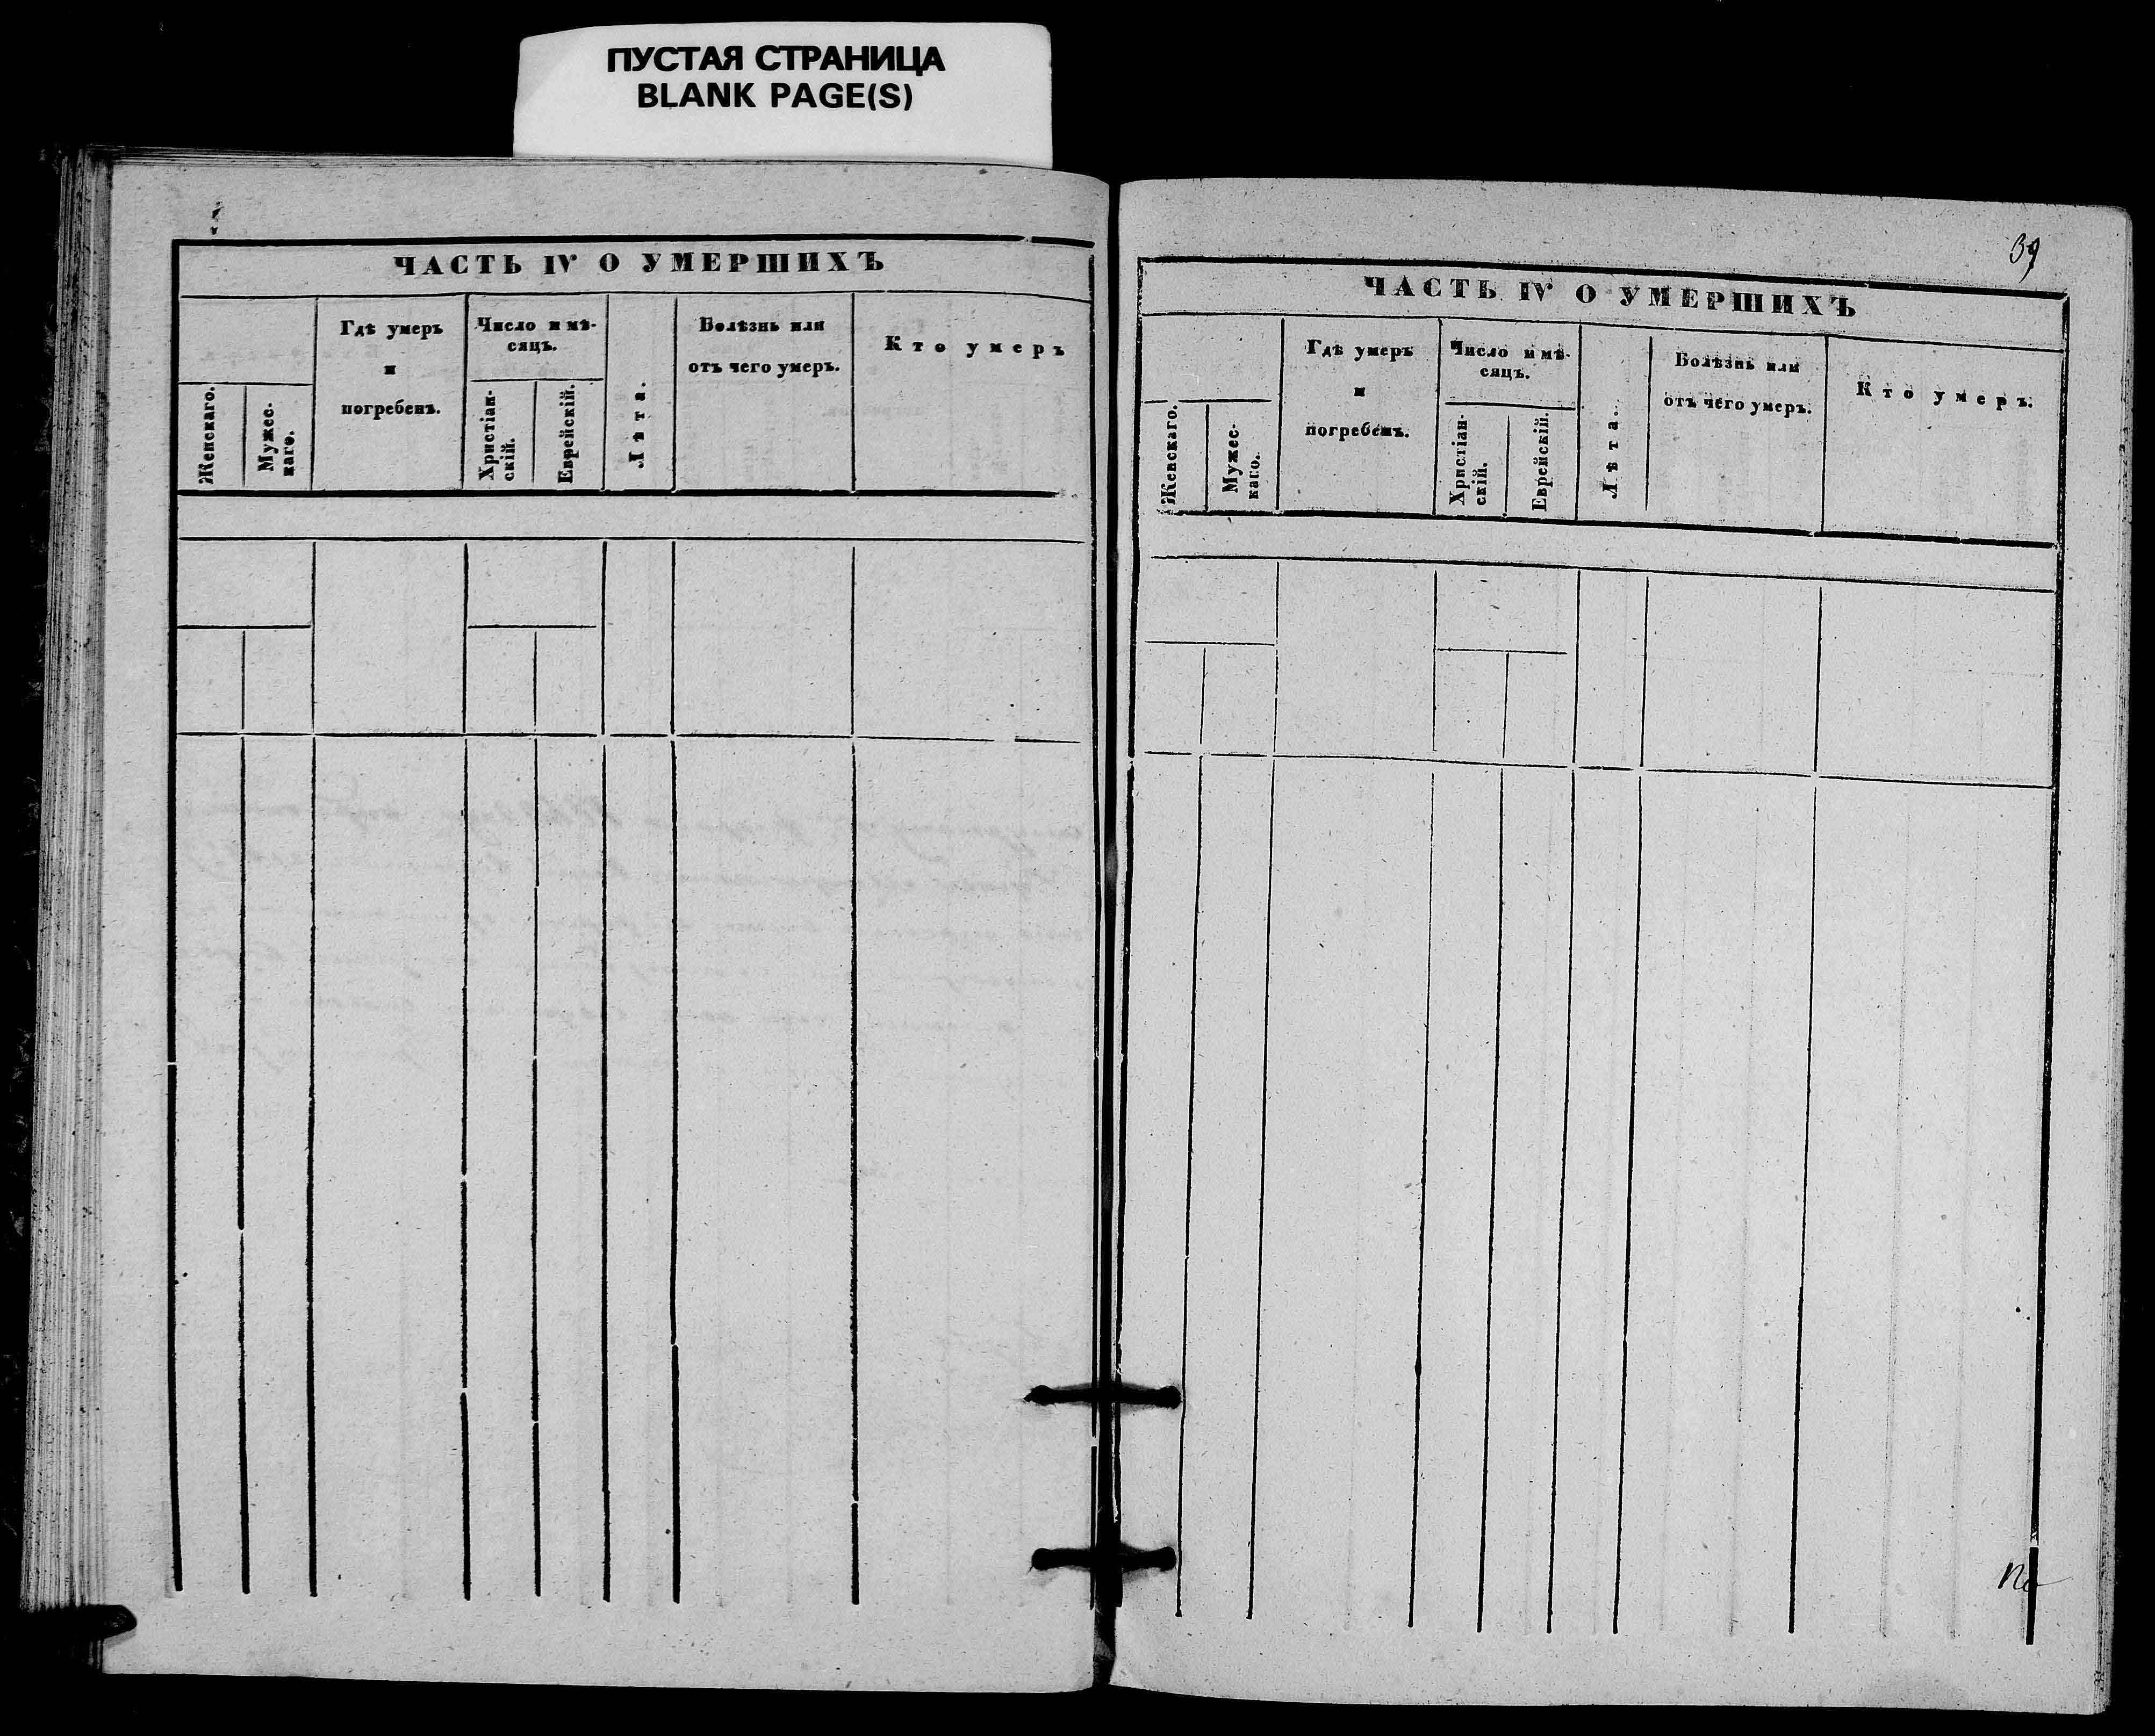 ПУСТАЯ СТРАНИЦА
BLANK PAGE(S)
ЧАСТЬ IV О УМЕРШИХЪ
Женскаго.
Мужес-
каго.
Гдѣ умеръ
и
погребенъ.
Число и мѣ-
сяцъ.
Христіан-
скій.
Еврейскій.
Лѣта.
Болѣзнь или
отъ чего умеръ.
Кто умеръ
39
ЧАСТЬ IV О УМЕРШИХЪ
Женскаго.
Мужес-
каго.
Гдѣ умеръ
и
погребенъ.
Число и мѣ-
сяцъ.
Христіан-
скій.
Еврейскій.
Лѣта.
Болѣзнь или
отъ чего умеръ.
Кто умеръ.